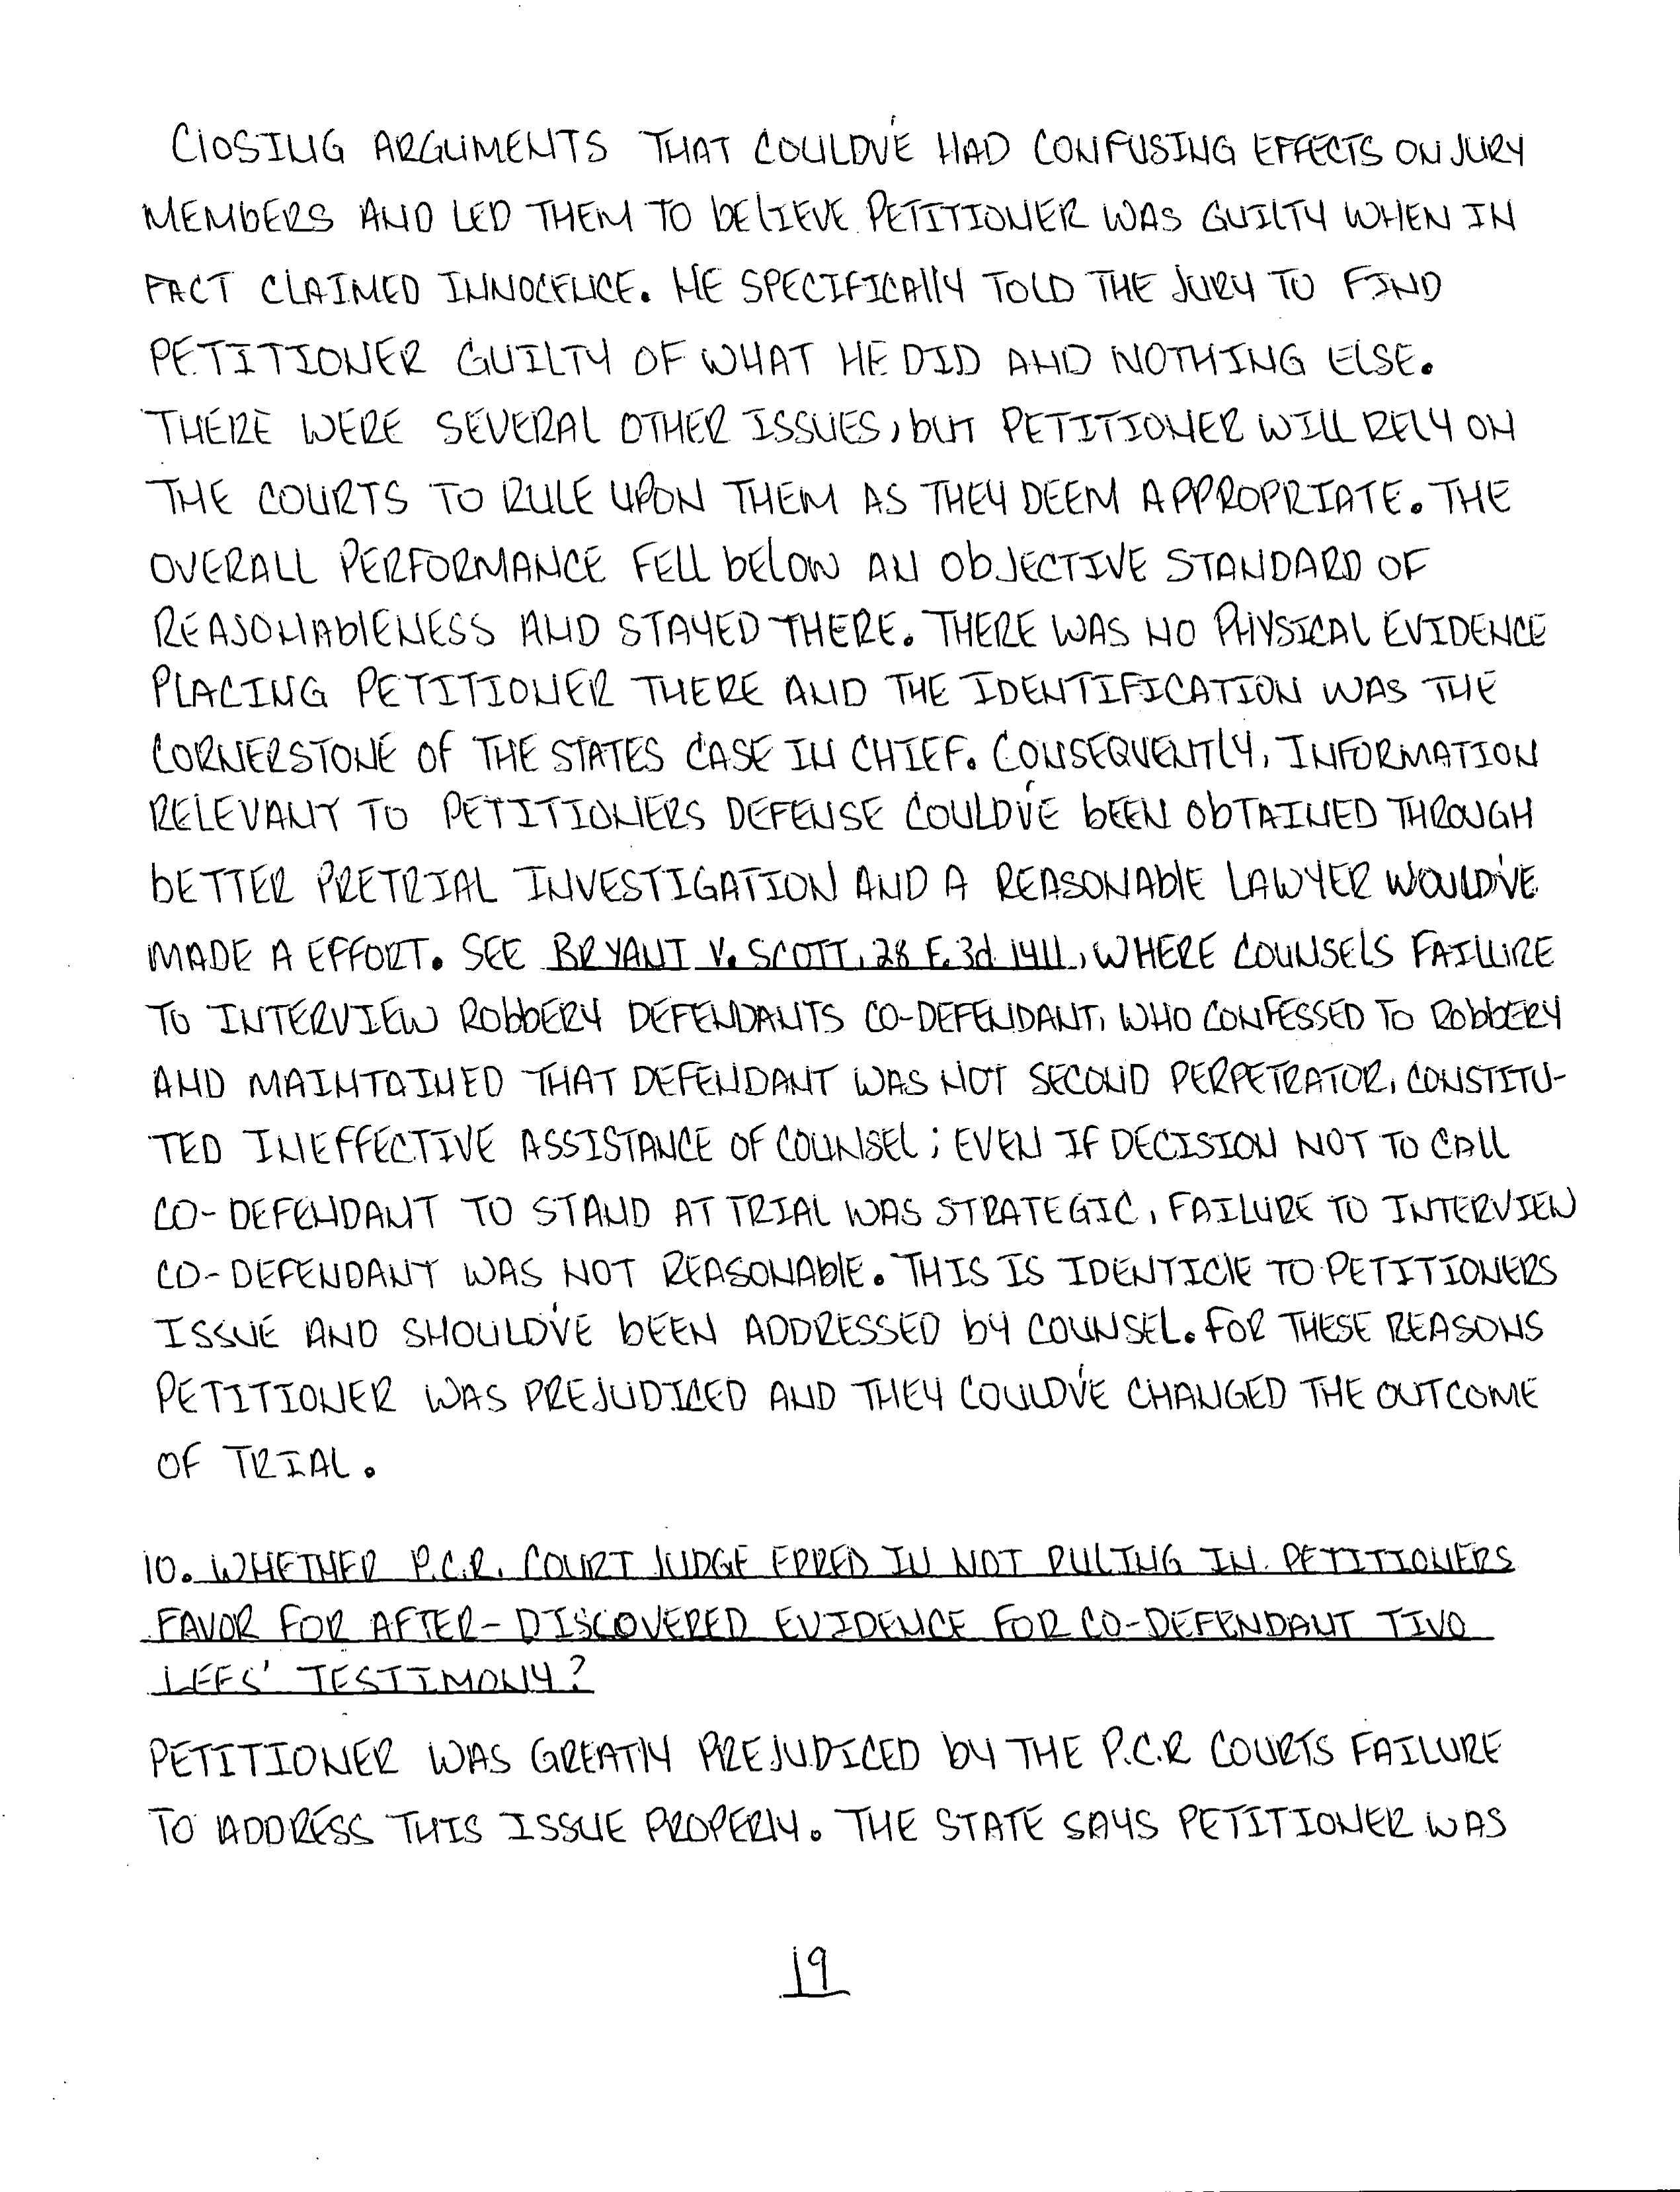 CLOSING ARGUMENTS THAT COULD'VE HAD CONFUSING EFFECTS ON JURY
MEMBERS AND LED THEM TO BELIEVE PETITIONER WAS GUILTY WHEN IN
FACT CLAIMED INNOCENCE. HE SPECIFICALLY TOLD THE JURY TO FIND
PETITIONER GUILTY OF WHAT HE DID AND NOTHING ELSE.
THERE WERE SEVERAL OTHER ISSUES, BUT PETITIONER WILL RELY ON
THE COURTS TO RULE UPON THEM AS THEY DEEM APPROPRIATE. THE
OVERALL PERFORMANCE FELL BELOW AN OBJECTIVE STANDARD OF
REASONABLENESS AND STAYED THERE. THERE WAS NO PHYSICAL EVIDENCE
PLACING PETITIONER THERE AND THE IDENTIFICATION WAS THE
CORNERSTONE OF THE STATES CASE IN CHIEF. CONSEQUENTLY, INFORMATION
RELEVANT TO PETITIONERS DEFENSE COULD'VE BEEN OBTAINED THROUGH
BETTER PRETRIAL INVESTIGATION AND A REASONABLE LAWYER WOULD'VE
MADE A EFFORT. SEE BRYANT V. SCOTT, 28 F.3d 1411, WHERE COUNSELS FAILURE
TO INTERVIEW ROBBERY DEFENDANTS CO-DEFENDANT, WHO CONFESSED TO ROBBERY
AND MAINTAINED THAT DEFENDANT WAS NOT SECOND PERPETRATOR, CONSTITU-
TED INEFFECTIVE ASSISTANCE OF COUNSEL; EVEN IF DECISION NOT TO CALL
CO-DEFENDANT TO STAND AT TRIAL WAS STRATEGIC, FAILURE TO INTERVIEW
CO-DEFENDANT WAS NOT REASONABLE. THIS IS IDENTICLE TO PETITIONERS
ISSUE AND SHOULD'VE BEEN ADDRESSED BY COUNSEL. FOR THESE REASONS
PETITIONER WAS PREJUDICED AND THEY COULD'VE CHANGED THE OUTCOME
OF TRIAL.
10. WHETHER P.C.R. COURT JUDGE ERRED IN NOT RULING IN PETITIONERS
FAVOR FOR AFTER-DISCOVERED EVIDENCE FOR CO-DEFENDANT TIVO
LEES' TESTIMONY?
PETITIONER WAS GREATLY PREJUDICED BY THE P.C.R COURTS FAILURE
TO ADDRESS THIS ISSUE PROPERLY. THE STATE SAYS PETITIONER WAS
19